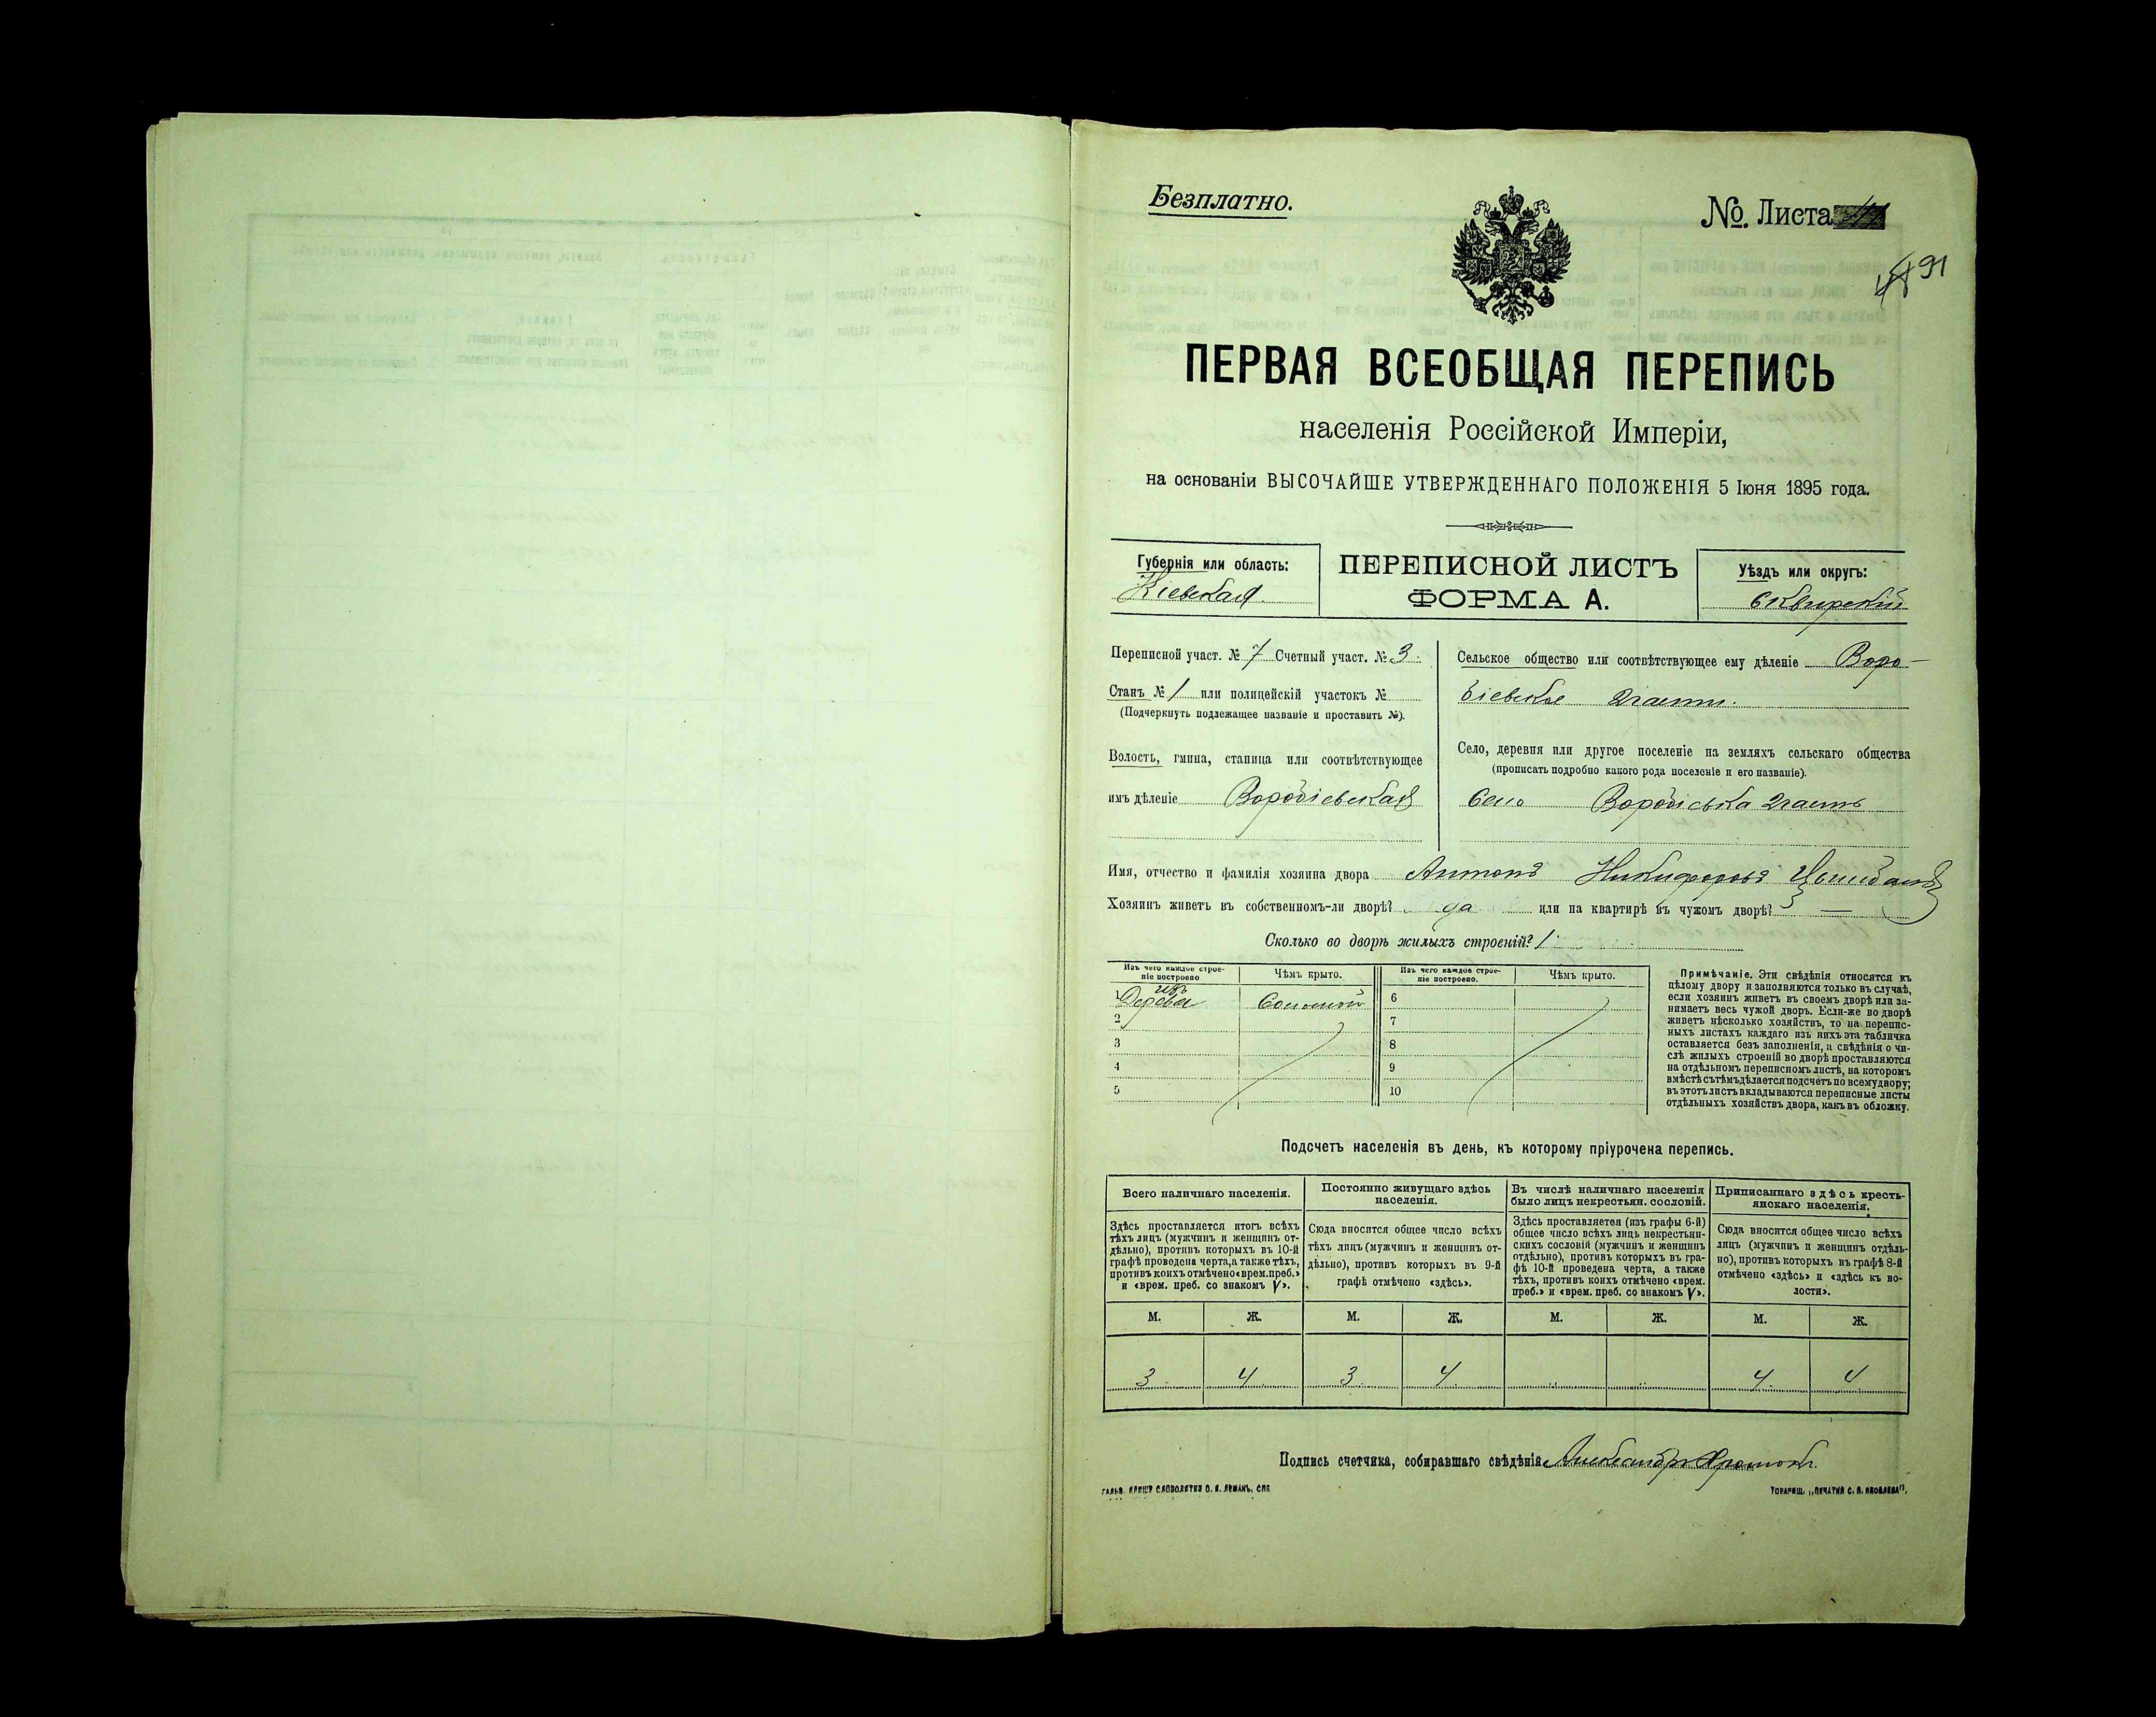 Безплатно.
№. Листа
91
ПЕРВАЯ ВСЕОБЩАЯ ПЕРЕПИСЬ
населенія Россійской Имперіи,
на основаніи ВЫСОЧАЙШЕ УТВЕРЖДЕННАГО ПОЛОЖЕНІЯ 5 Іюня 1895 года.
Губернія или область:
Кіевская
ПЕРЕПИСНОЙ ЛИСТЪ
ФОРМА А.
Уѣздъ или округъ:
Сквирскій
Переписной участ. № 7 Счетный участ. № 3.
Станъ № 1 или полицейскій участокъ №
(Подчеркнуть подлежащее названіе и проставить №).
Волость, гмина, станица или соотвѣтствующее
имъ дѣленіе Воробіевская
Сельское общество или соотвѣтствующее ему дѣленіе Воро-
біевское
Село, деревня или другое поселеніе на земляхъ сельскаго общества
(прописать подробно какого рода поселеніе и его названіе).
Село
Имя, отчество и фамилія хозяина двора Антонъ Никифоровъ
Хозяинъ живетъ въ собственномъ-ли дворѣ? да или на квартирѣ въ чужомъ дворѣ? —
Сколько во дворѣ жилыхъ строеній? 1
Изъ чего каждое строе-
ніе построено
Чѣмъ крыто.
Изъ чего каждое строе-
ніе построено.
Чѣмъ крыто.
1 изъ Дерева Соломой
2
3
4
5
6
7
8
9
10
Примѣчаніе. Эти свѣдѣнія относятся къ
цѣлому двору и заполняются только въ случаѣ,
если хозяинъ живетъ въ своемъ дворѣ или за-
нимаетъ весь чужой дворъ. Если-же во дворѣ
живетъ нѣсколько хозяйствъ, то на перепис-
ныхъ листахъ каждаго изъ нихъ эта табличка
оставляется безъ заполненія, а свѣдѣнія о чи-
слѣ жилыхъ строеній во дворѣ проставляются
на отдѣльномъ переписномъ листѣ, на которомъ
вмѣстѣ съ тѣмъ дѣлается подсчетъ по всему двору;
въ этотъ листъ вкладываются переписные листы
отдѣльныхъ хозяйствъ двора, какъ въ обложку.
Подсчетъ населенія въ день, къ которому пріурочена перепись.
Всего наличнаго населенія.
Здѣсь проставляется итогъ всѣхъ
тѣхъ лицъ (мужчинъ и женщинъ от-
дѣльно), противъ которыхъ въ 10-й
графѣ проведена черта, а также тѣхъ,
противъ коихъ отмѣчено «врем. преб.»
и «врем. преб. со знакомъ V».
Постоянно живущаго здѣсь
населенія.
Сюда вносится общее число всѣхъ
тѣхъ лицъ (мужчинъ и женщинъ от-
дѣльно), противъ которыхъ въ 9-й
графѣ отмѣчено «здѣсь».
Въ числѣ наличнаго населенія
было лицъ некрестьян. сословій.
Здѣсь проставляется (изъ графы 6-й)
общее число всѣхъ лицъ некрестьян-
скихъ сословій (мужчинъ и женщинъ
отдѣльно), противъ которыхъ въ гра-
фѣ 10-й проведена черта, а также
тѣхъ, противъ коихъ отмѣчено «врем.
преб.» и «врем. преб. со знакомъ V».
Приписаннаго здѣсь кресть-
янскаго населенія.
Сюда вносится общее число всѣхъ
лицъ (мужчинъ и женщинъ отдѣль-
но), противъ которыхъ въ графѣ 8-й
отмѣчено «здѣсь» и «здѣсь къ во-
лости».
М. Ж. М. Ж. М. Ж. М. Ж.
3 4 3 4 4 4
Подпись счетчика, собиравшаго свѣдѣнія Александръ